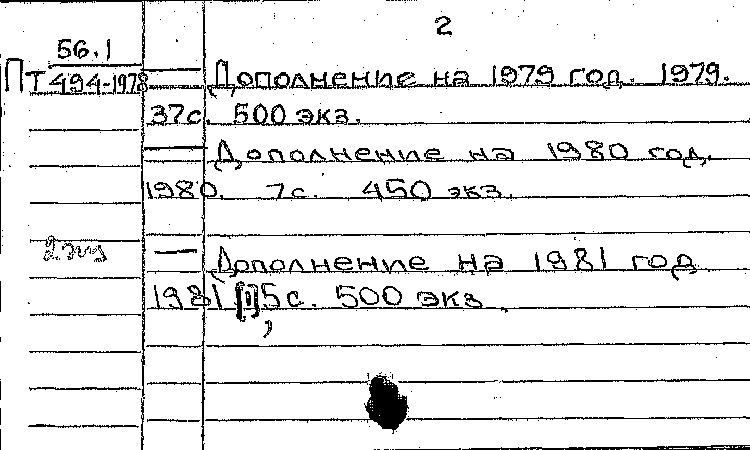 2
56.1
Пт 494-1978 — Дополнение на 1979 год. 1979.
37с. 500 экз.
— Дополнение на 1980 год.
1980. 7с. 450 экз.
2 экз — Дополнение на 1981 год
1981, 5с. 500 экз.